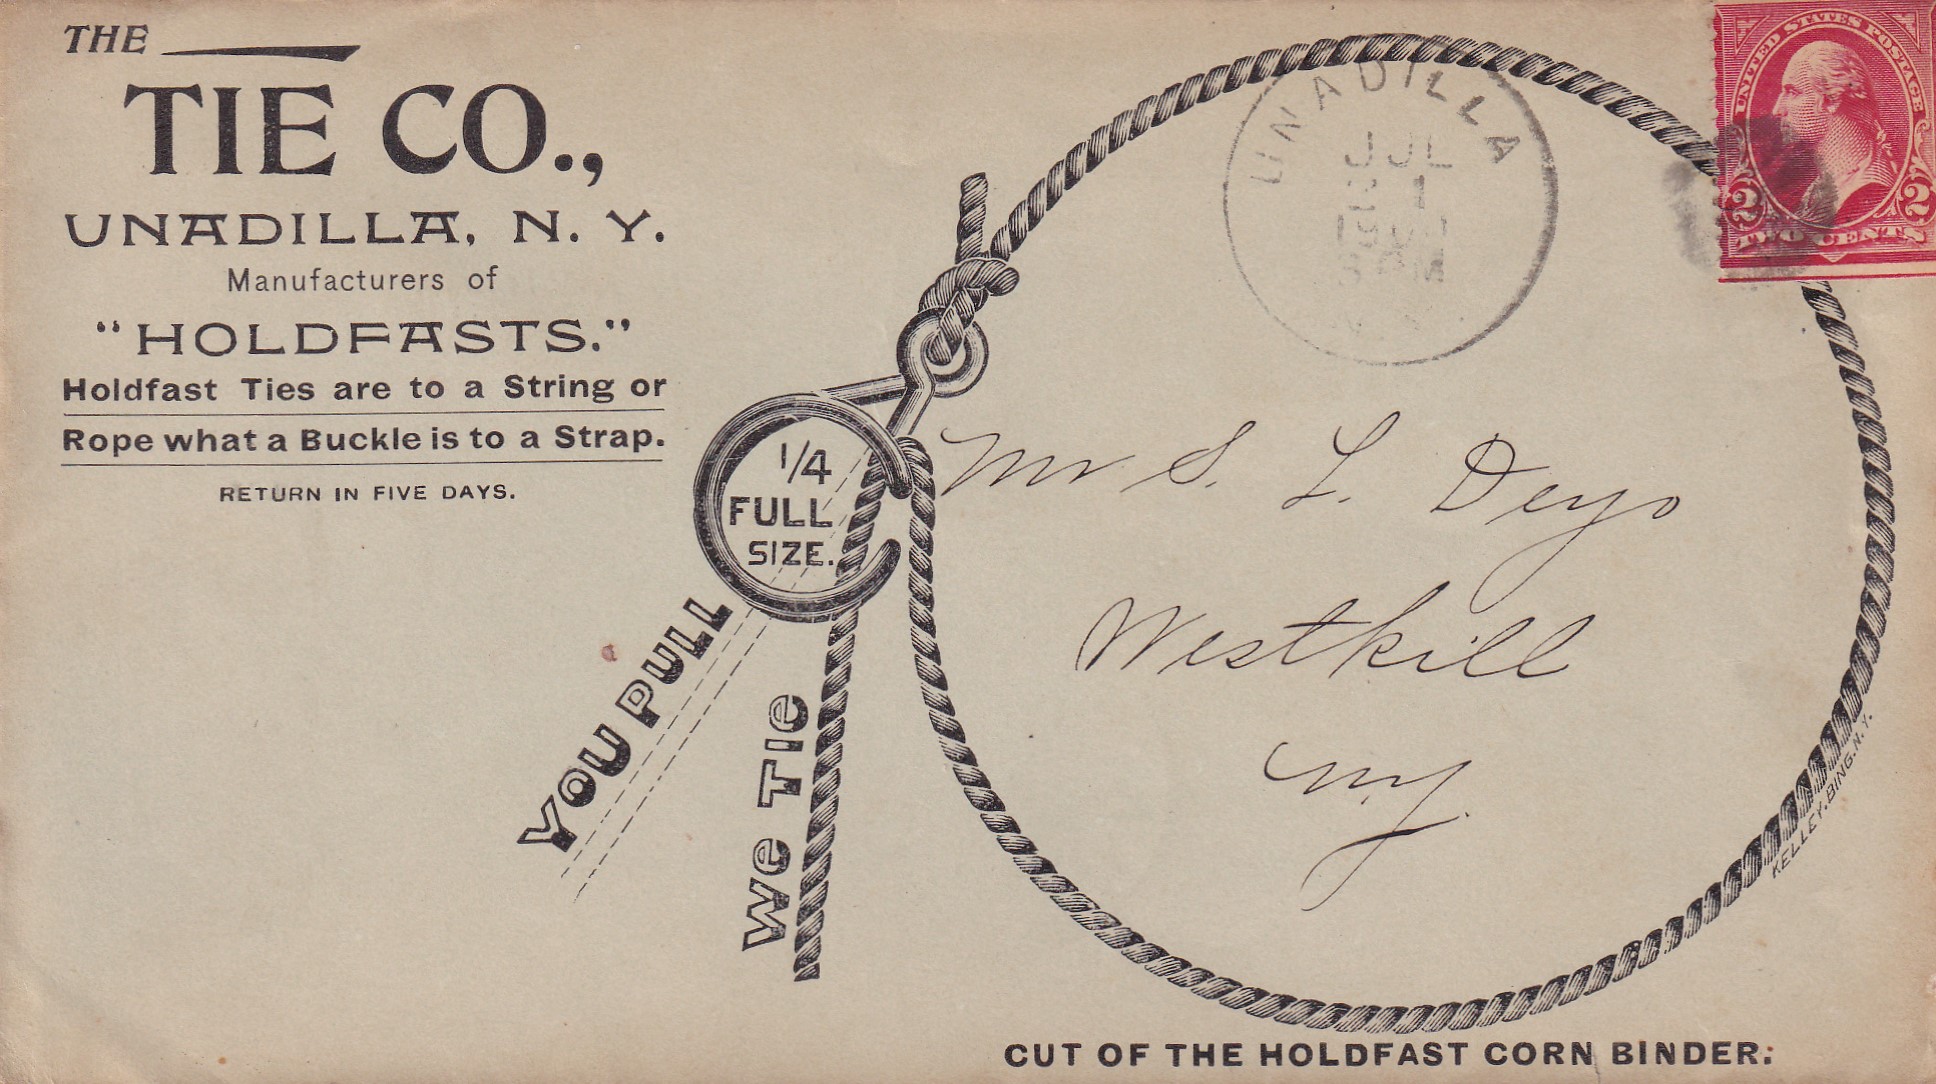 THE
TIE CO.,
UNADILLA, N. Y.
Manufacturers of
"HOLDFASTS."
Holdfast Ties are to a String or
Rope what a Buckle is to a Strap.
RETURN IN FIVE DAYS.
UNADILLA
JUL
UNITED STATES POSTAGE
2 2
TWO CENTS
1/4
FULL
SIZE.
YOU PULL
WE TIE
Mr S. L. Deyo
Westkill
N.Y.
KELLEY. BING. N.Y.
CUT OF THE HOLDFAST CORN BINDER.